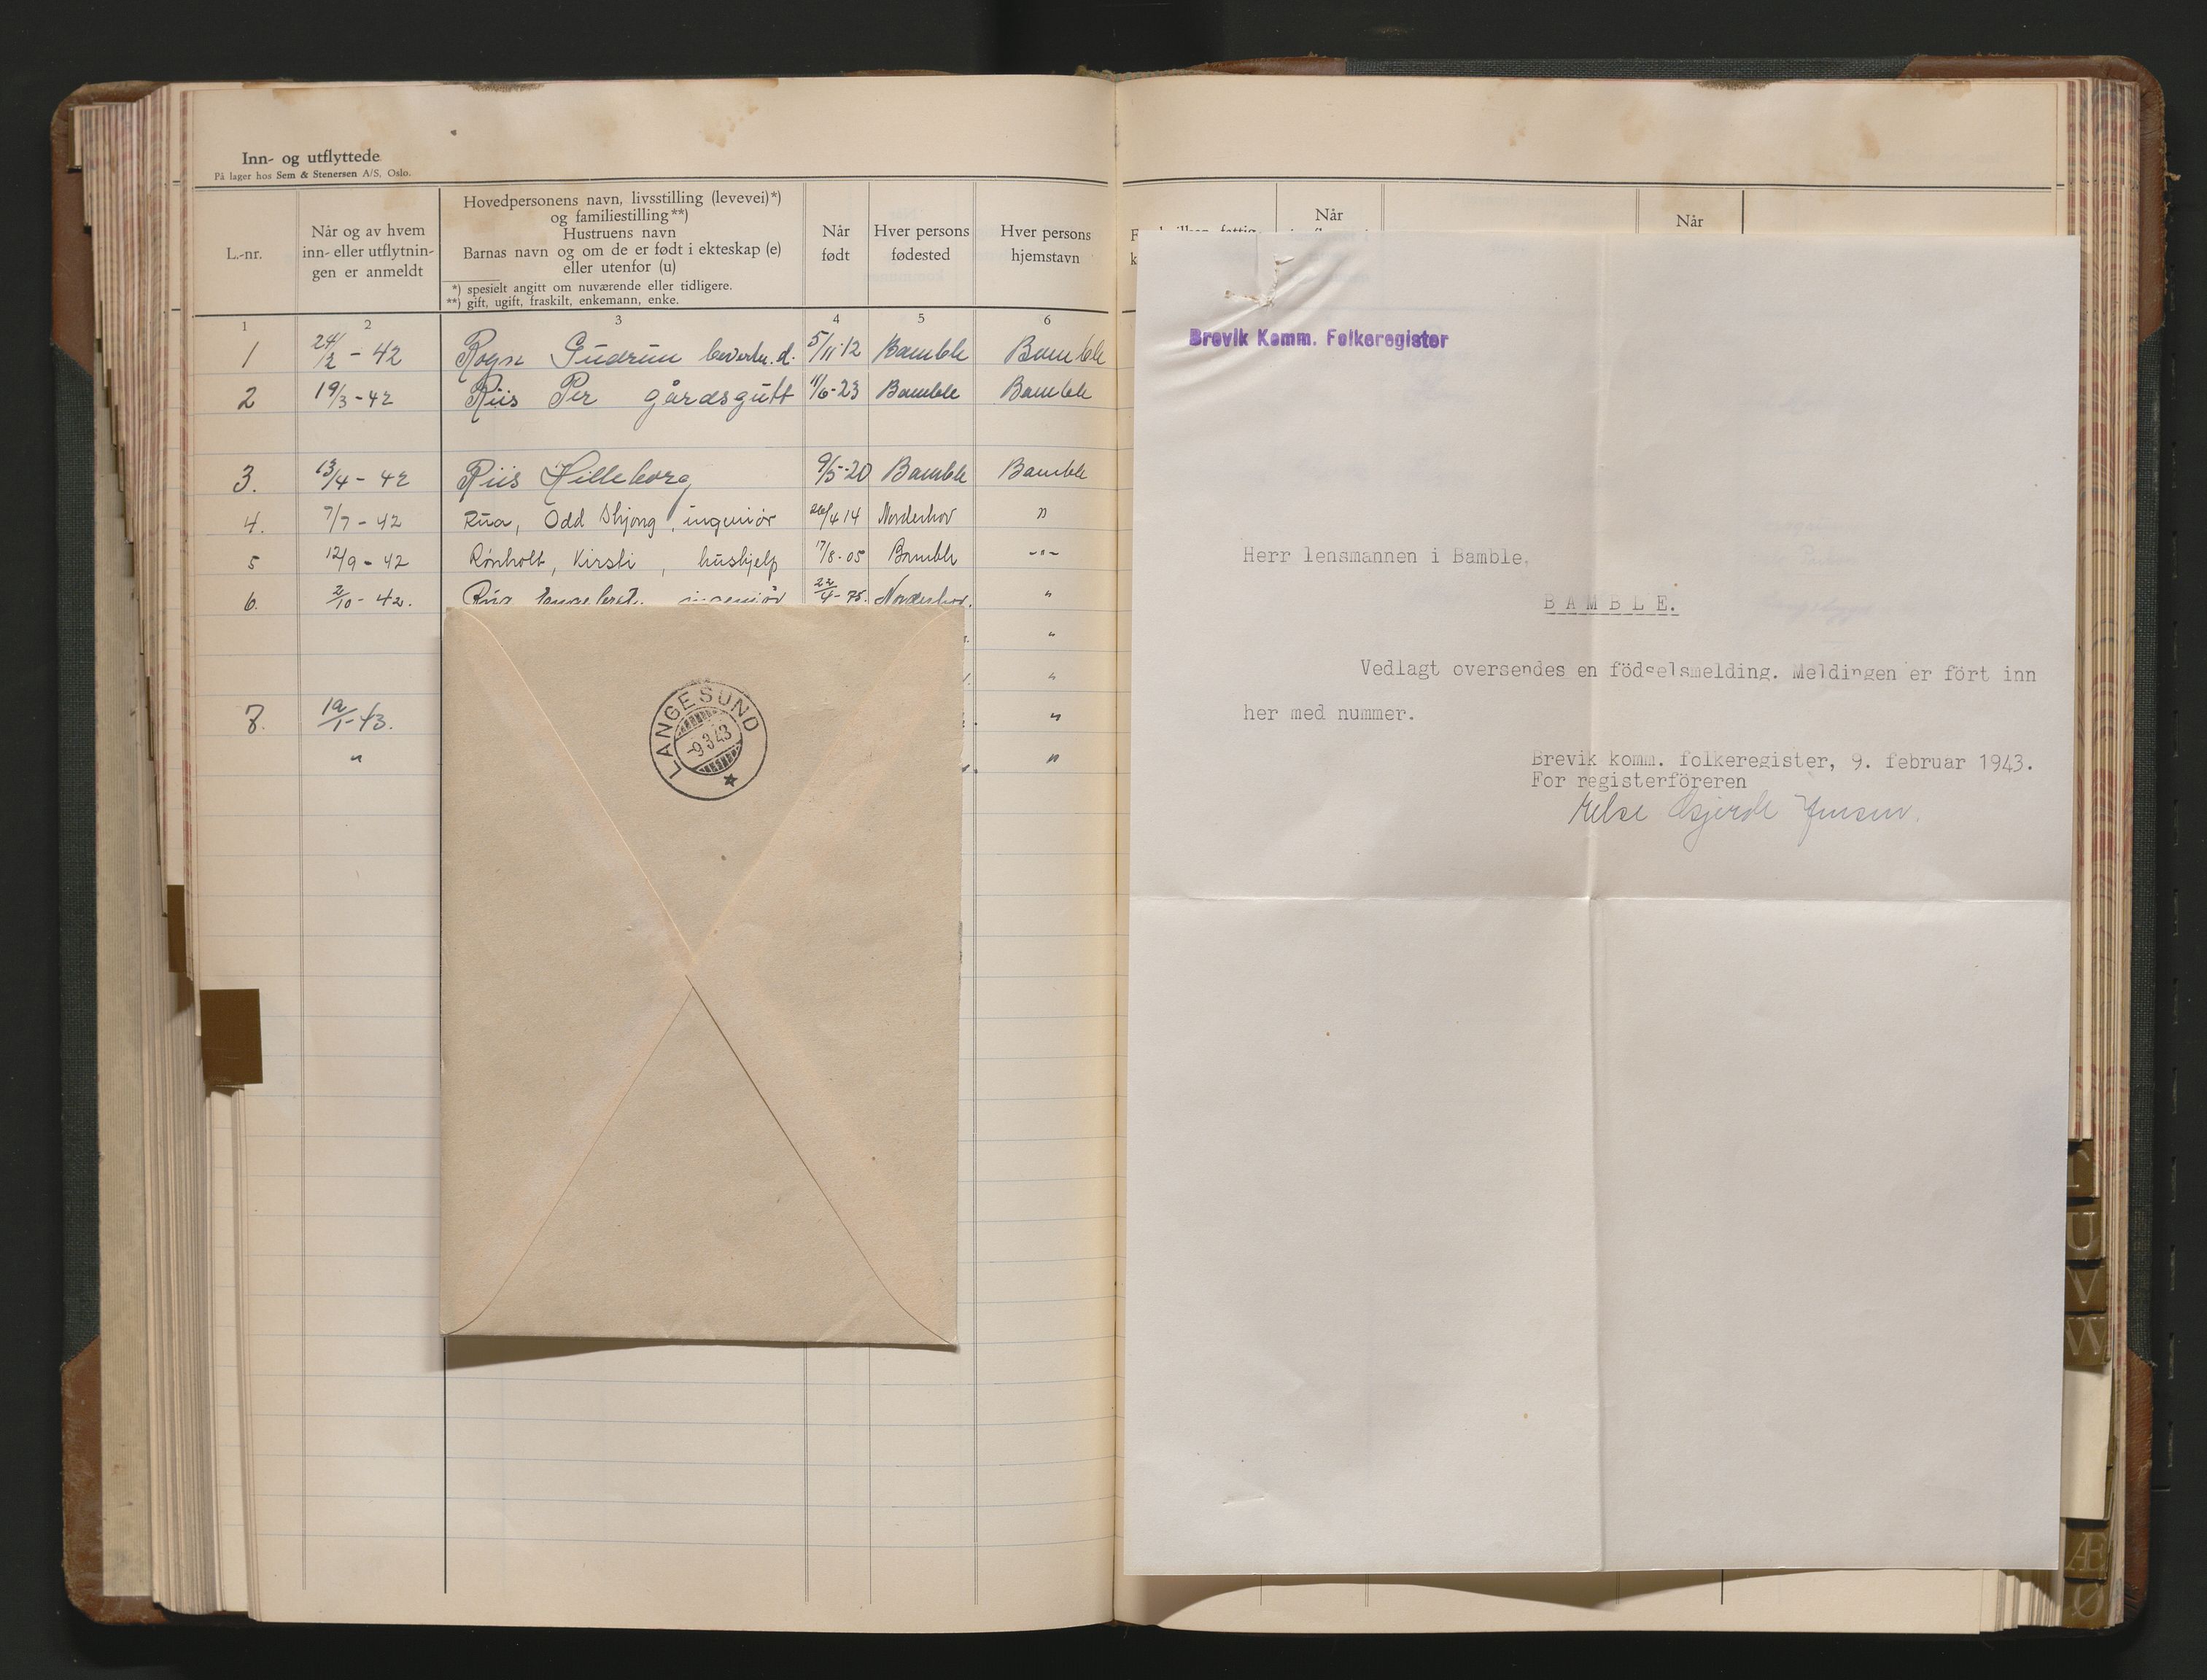 Inn- og utflyttede
På lager hos Sem & Stenersen A/S, Oslo.
L.-nr.
Når og av hvem
inn- eller utflytnin-
gen er anmeldt
Hovedpersonens navn, livsstilling (levevei)*)
og familiestilling**)
Hustruens navn
Barnas navn og om de er født i ekteskap (e)
eller utenfor (u)
*) spesielt angitt om nuværende eller tidligere.
**) gift, ugift, fraskilt, enkemann, enke.
Når
født
Hver persons
fødested
Hver persons
hjemstavn
1 2 3 4 5 6
1 24/2 - 42 Rogn Gudrun 5/11-12 Bamble Bamble
2 19/3 - 42 Riis Per gårdsgutt 11/6-23 Bamble Bamble
3. 13/4 - 42 Riis Hilleborg 9/5-20 Bamble Bamble
4. 7/7 - 42 Rua, Odd , ingeniør 26/4 14 Norderhov "
5 12/9 - 42 Rønholt, Kirsti , hushjelp 17/8-05 Bamble -"-
6. 2/10 - 42. Rua ingeniør 22/4-75. Norderhov. "
"
"
7. 19/1-43. "
" "
LANGESUND
-9 3 43
Når
Når
Brevik Komm. Folkeregister
Herr lensmannen i Bamble,
B A M B L E.
Vedlagt oversendes en födselsmelding. Meldingen er fört inn
her med nummer.
Brevik komm. folkeregister, 9. februar 1943.
For registerföreren
Jensen.
U
V
W
Æ
Ø